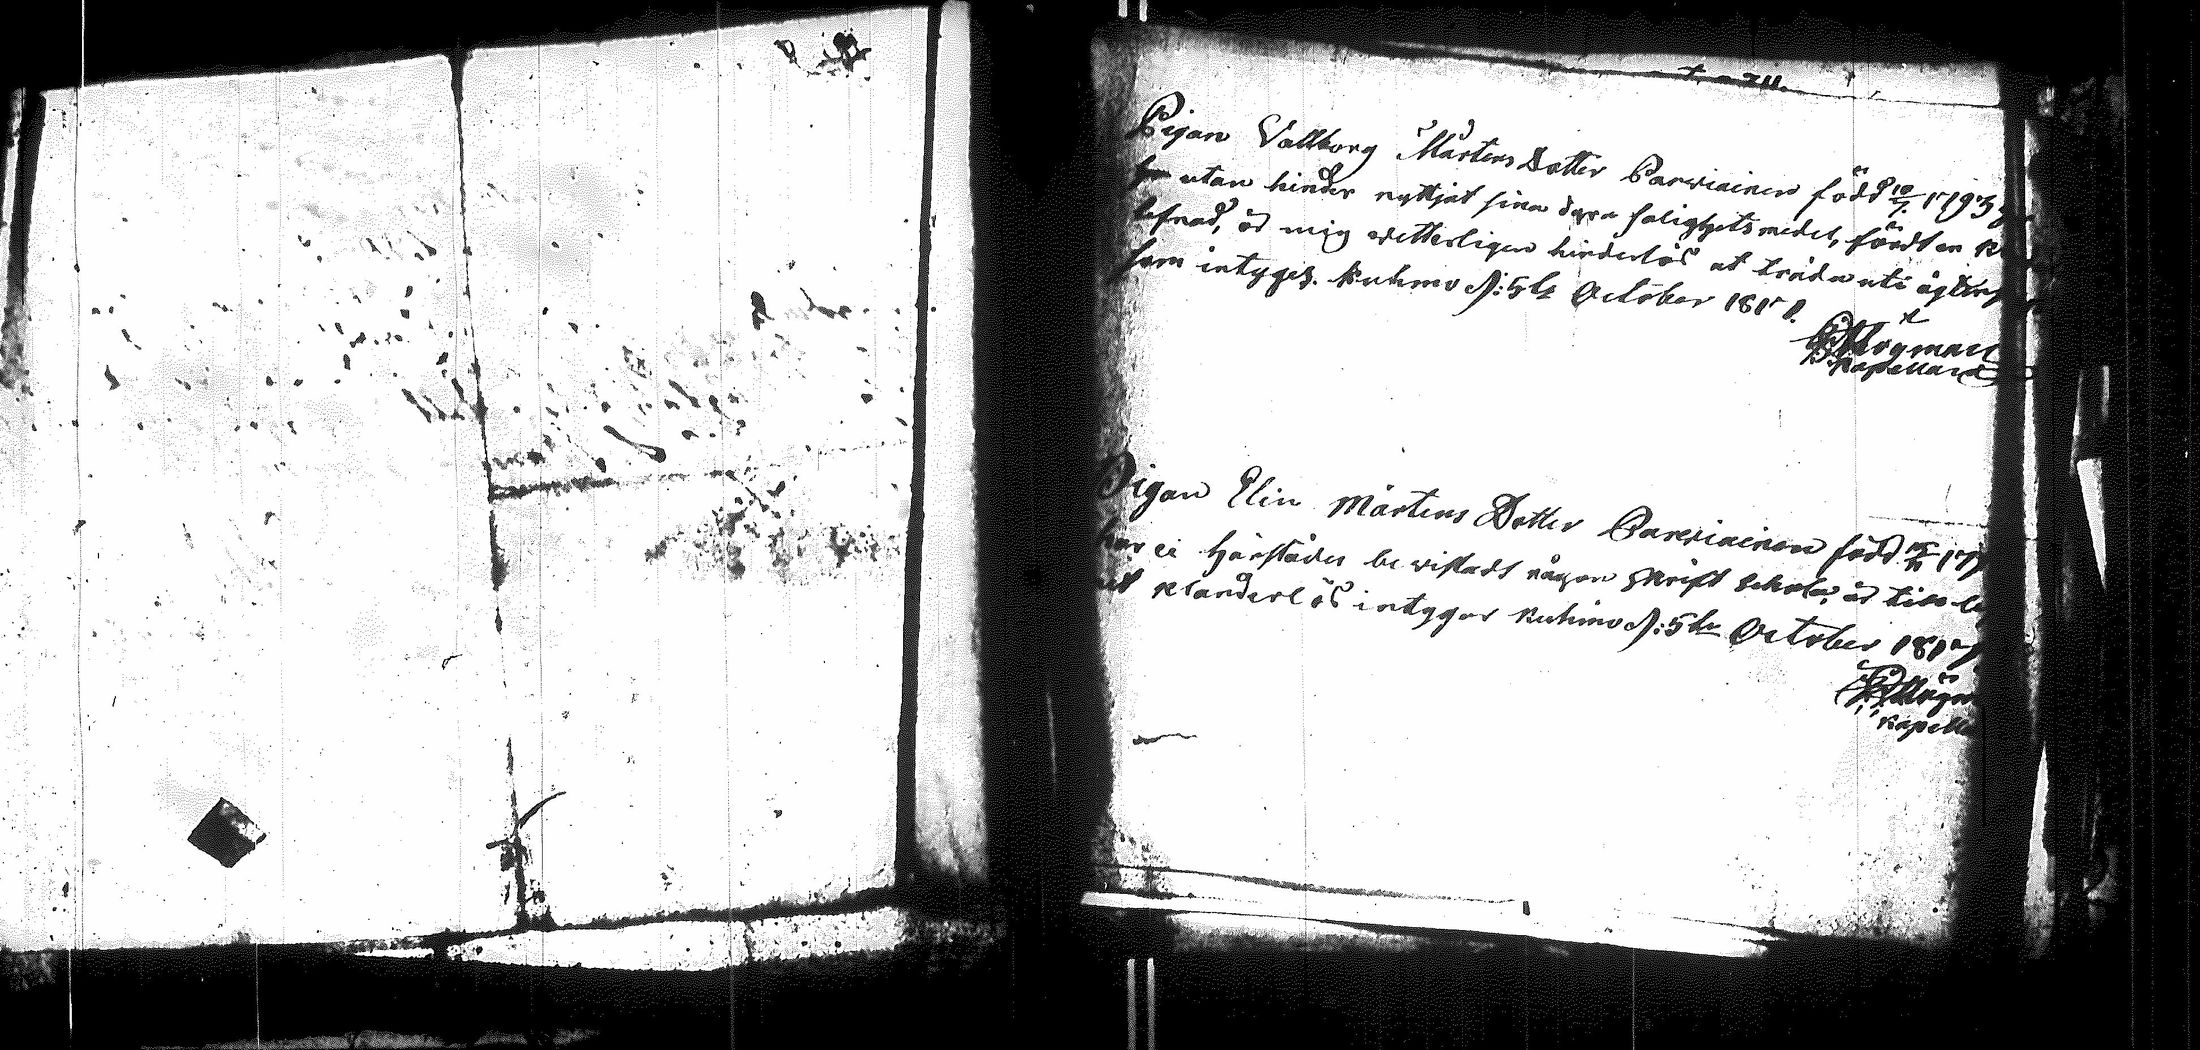 Pigan Vallborg Mårtens Dotter Parviainen född 10/7. 1793
utan hinder nyttjat sina dyra salighets medel, fördt en
lefnad, är mig vetterligen hinderlös at träda uti ägten
som intyges. Kuhmo d: 5te October 1817.
Högman
Kapellan
Pigan Elin Mårtens Dotter Parviainen född 17
har ei härstädes bevistadt någon skrift schola, är till
at klanderlös intygar Kuhmo d: 5te October 1817
Högm
Kapell